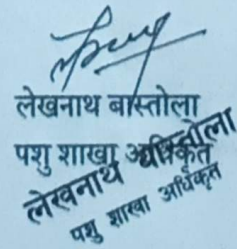 लेखनाथ बास्तोला
पशु शाखा अधिकृत
लेखनाथ बास्तोला
पशु शाखा अधिकृत